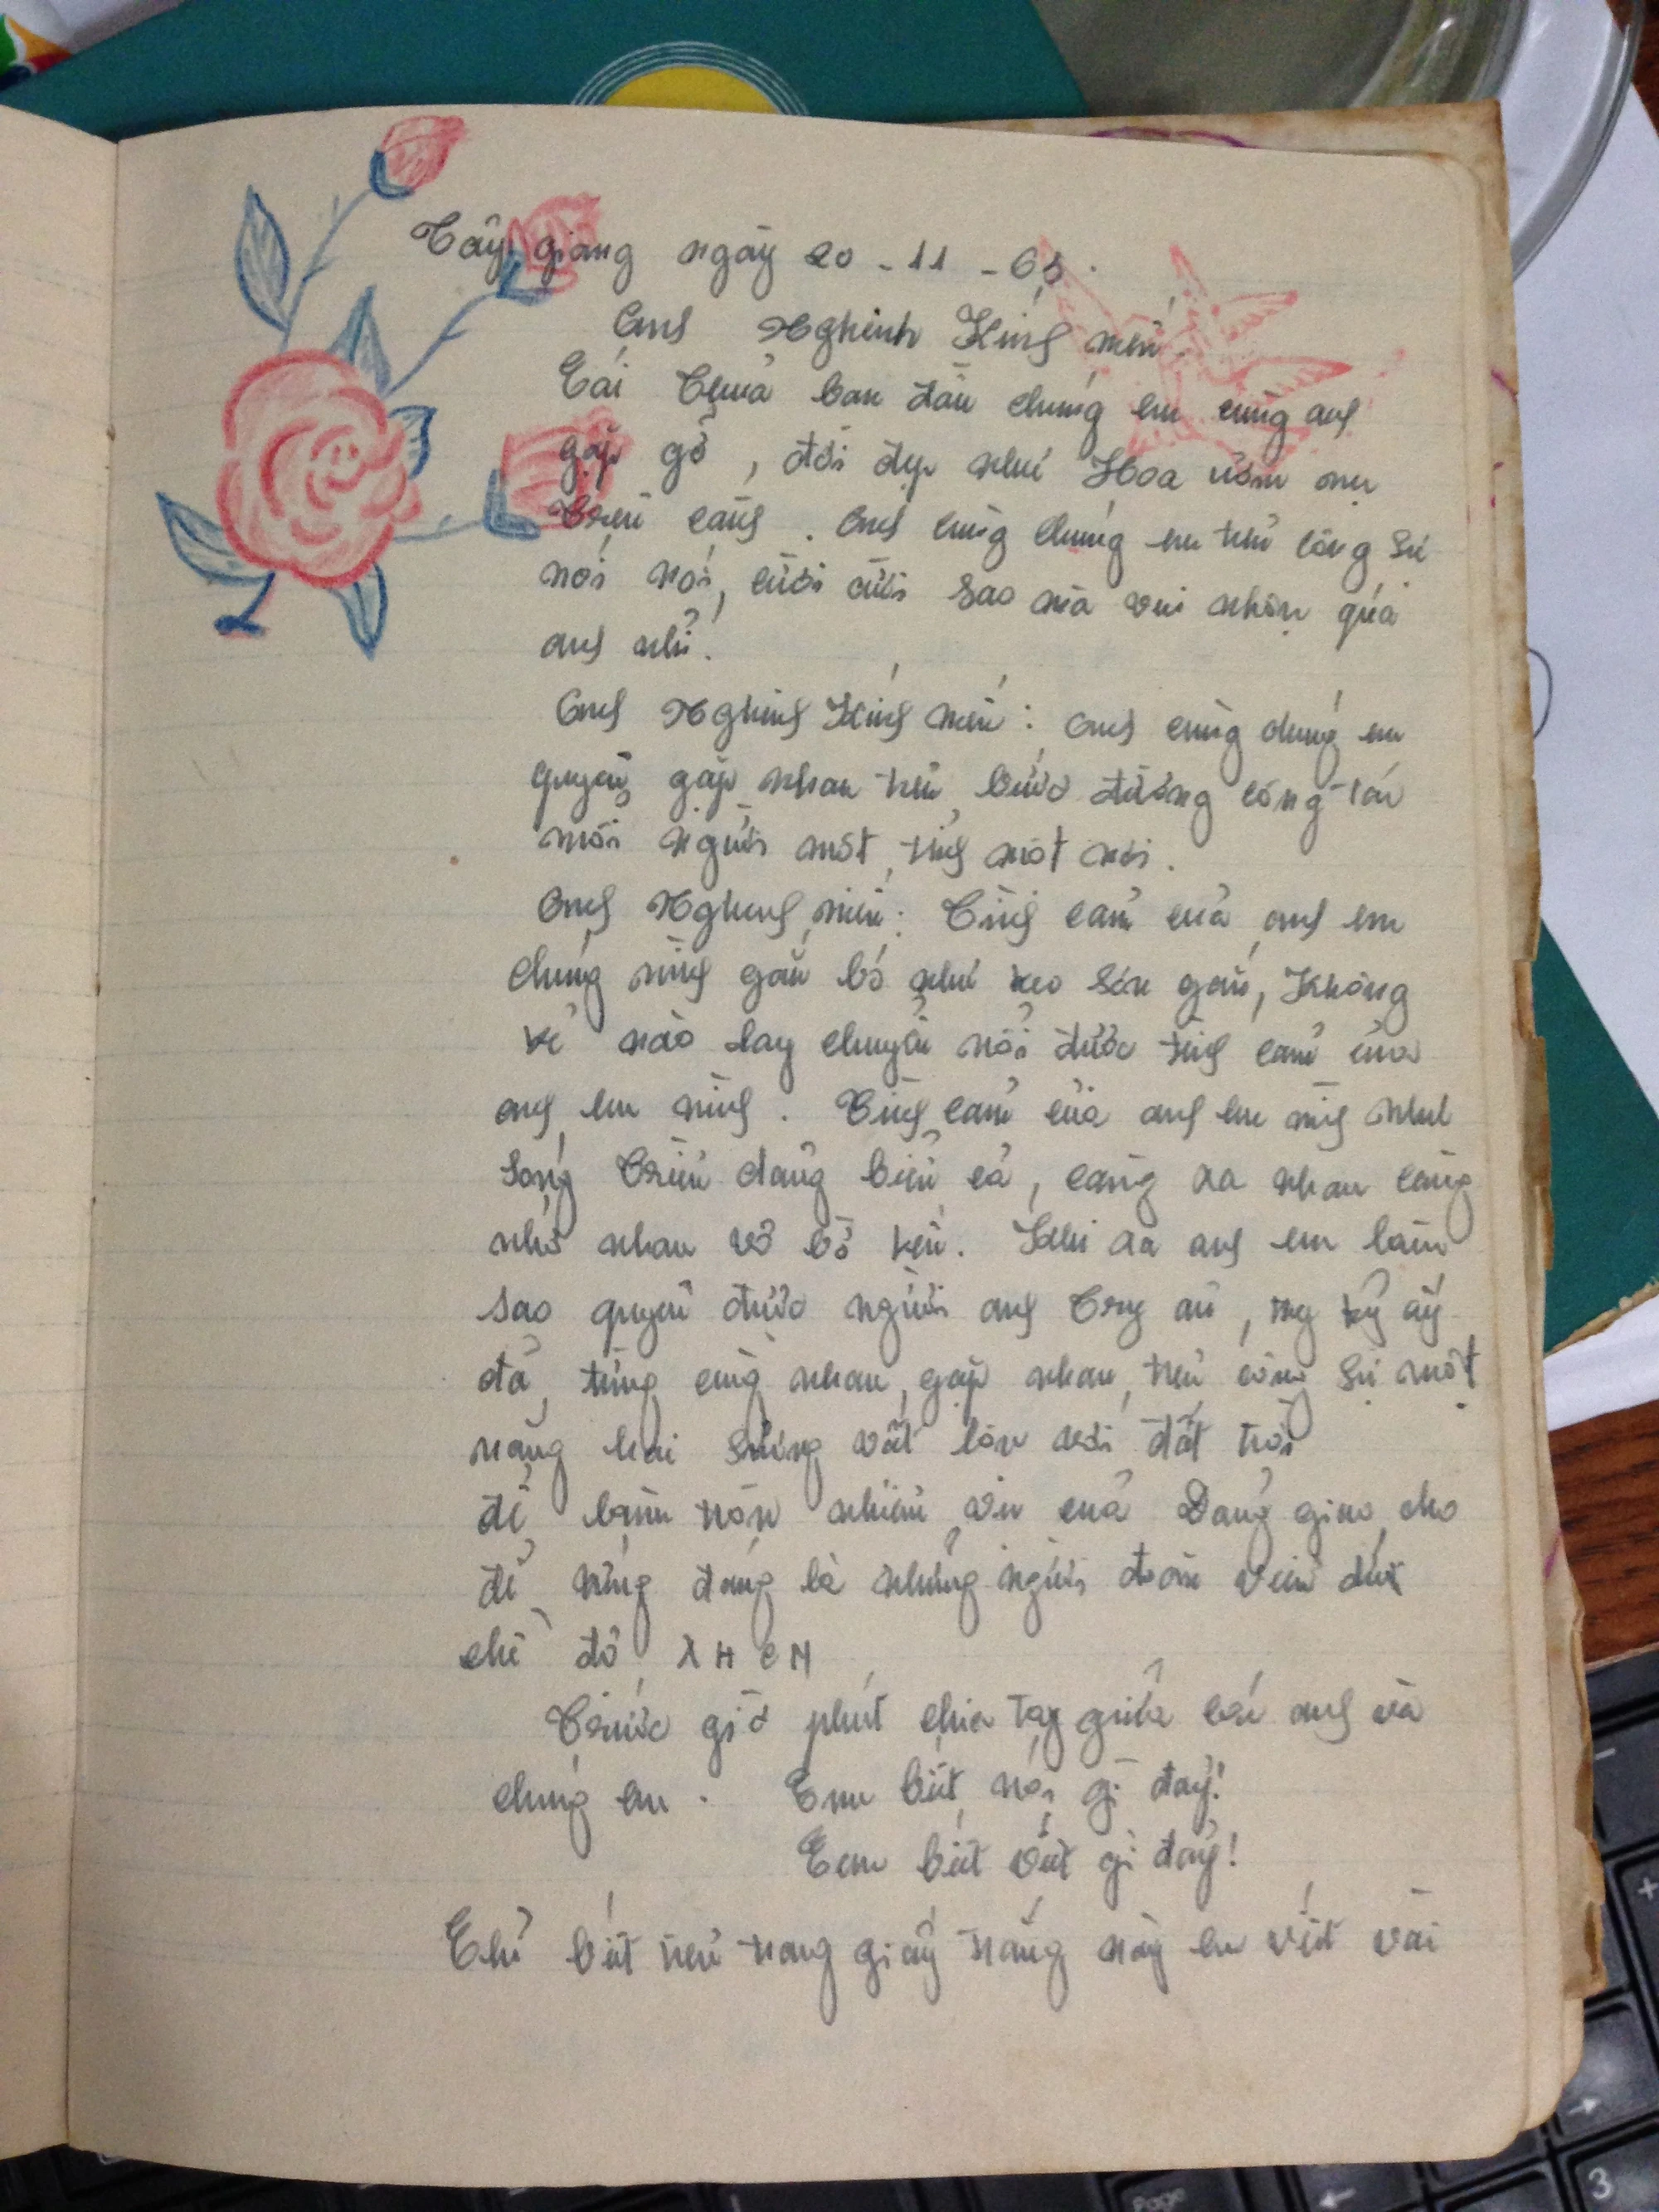 Tây giang ngày 20 - 11 - 65.
Anh Nghinh Kính mến
Cái Thuở ban đầu chúng em cùng anh
gặp gỡ, đời đẹp như Hoa nở
trên cành. Anh cùng chúng em trên công sự
nói nói, cười cười sao mà vui nhộn quá
anh nhỉ.
Anh Nghinh Kính mến: Anh cùng chúng em
quyện gặp nhau trên bước đường công tác
mỗi người một tỉnh một nơi.
Anh Nghinh mến: Tình cảm của anh em
chúng mình gắn bó như keo sơn gắn, Không
kẻ nào lay chuyển nổi được tình cảm của
anh em mình. Tình cảm của anh em mình như
sóng Triều dâng biển cả, càng xa nhau càng
nhớ nhau vô bờ bến. Khi xa anh em làm
sao quên được người anh Trong ấy
đã từng cùng nhau, gặp nhau, trên công sự một
nắng hai sương vật lộn với đất trời
để làm tròn nhiệm vụ của Đảng giao cho
để xứng đáng là những người đoàn viên dưới
chế độ XHCN
Trước giờ phút chia tay giữa các anh và
chúng em. Em biết nói gì đây!
Em biết viết gì đây!
Chỉ biết trên trang giấy trắng này em viết vài